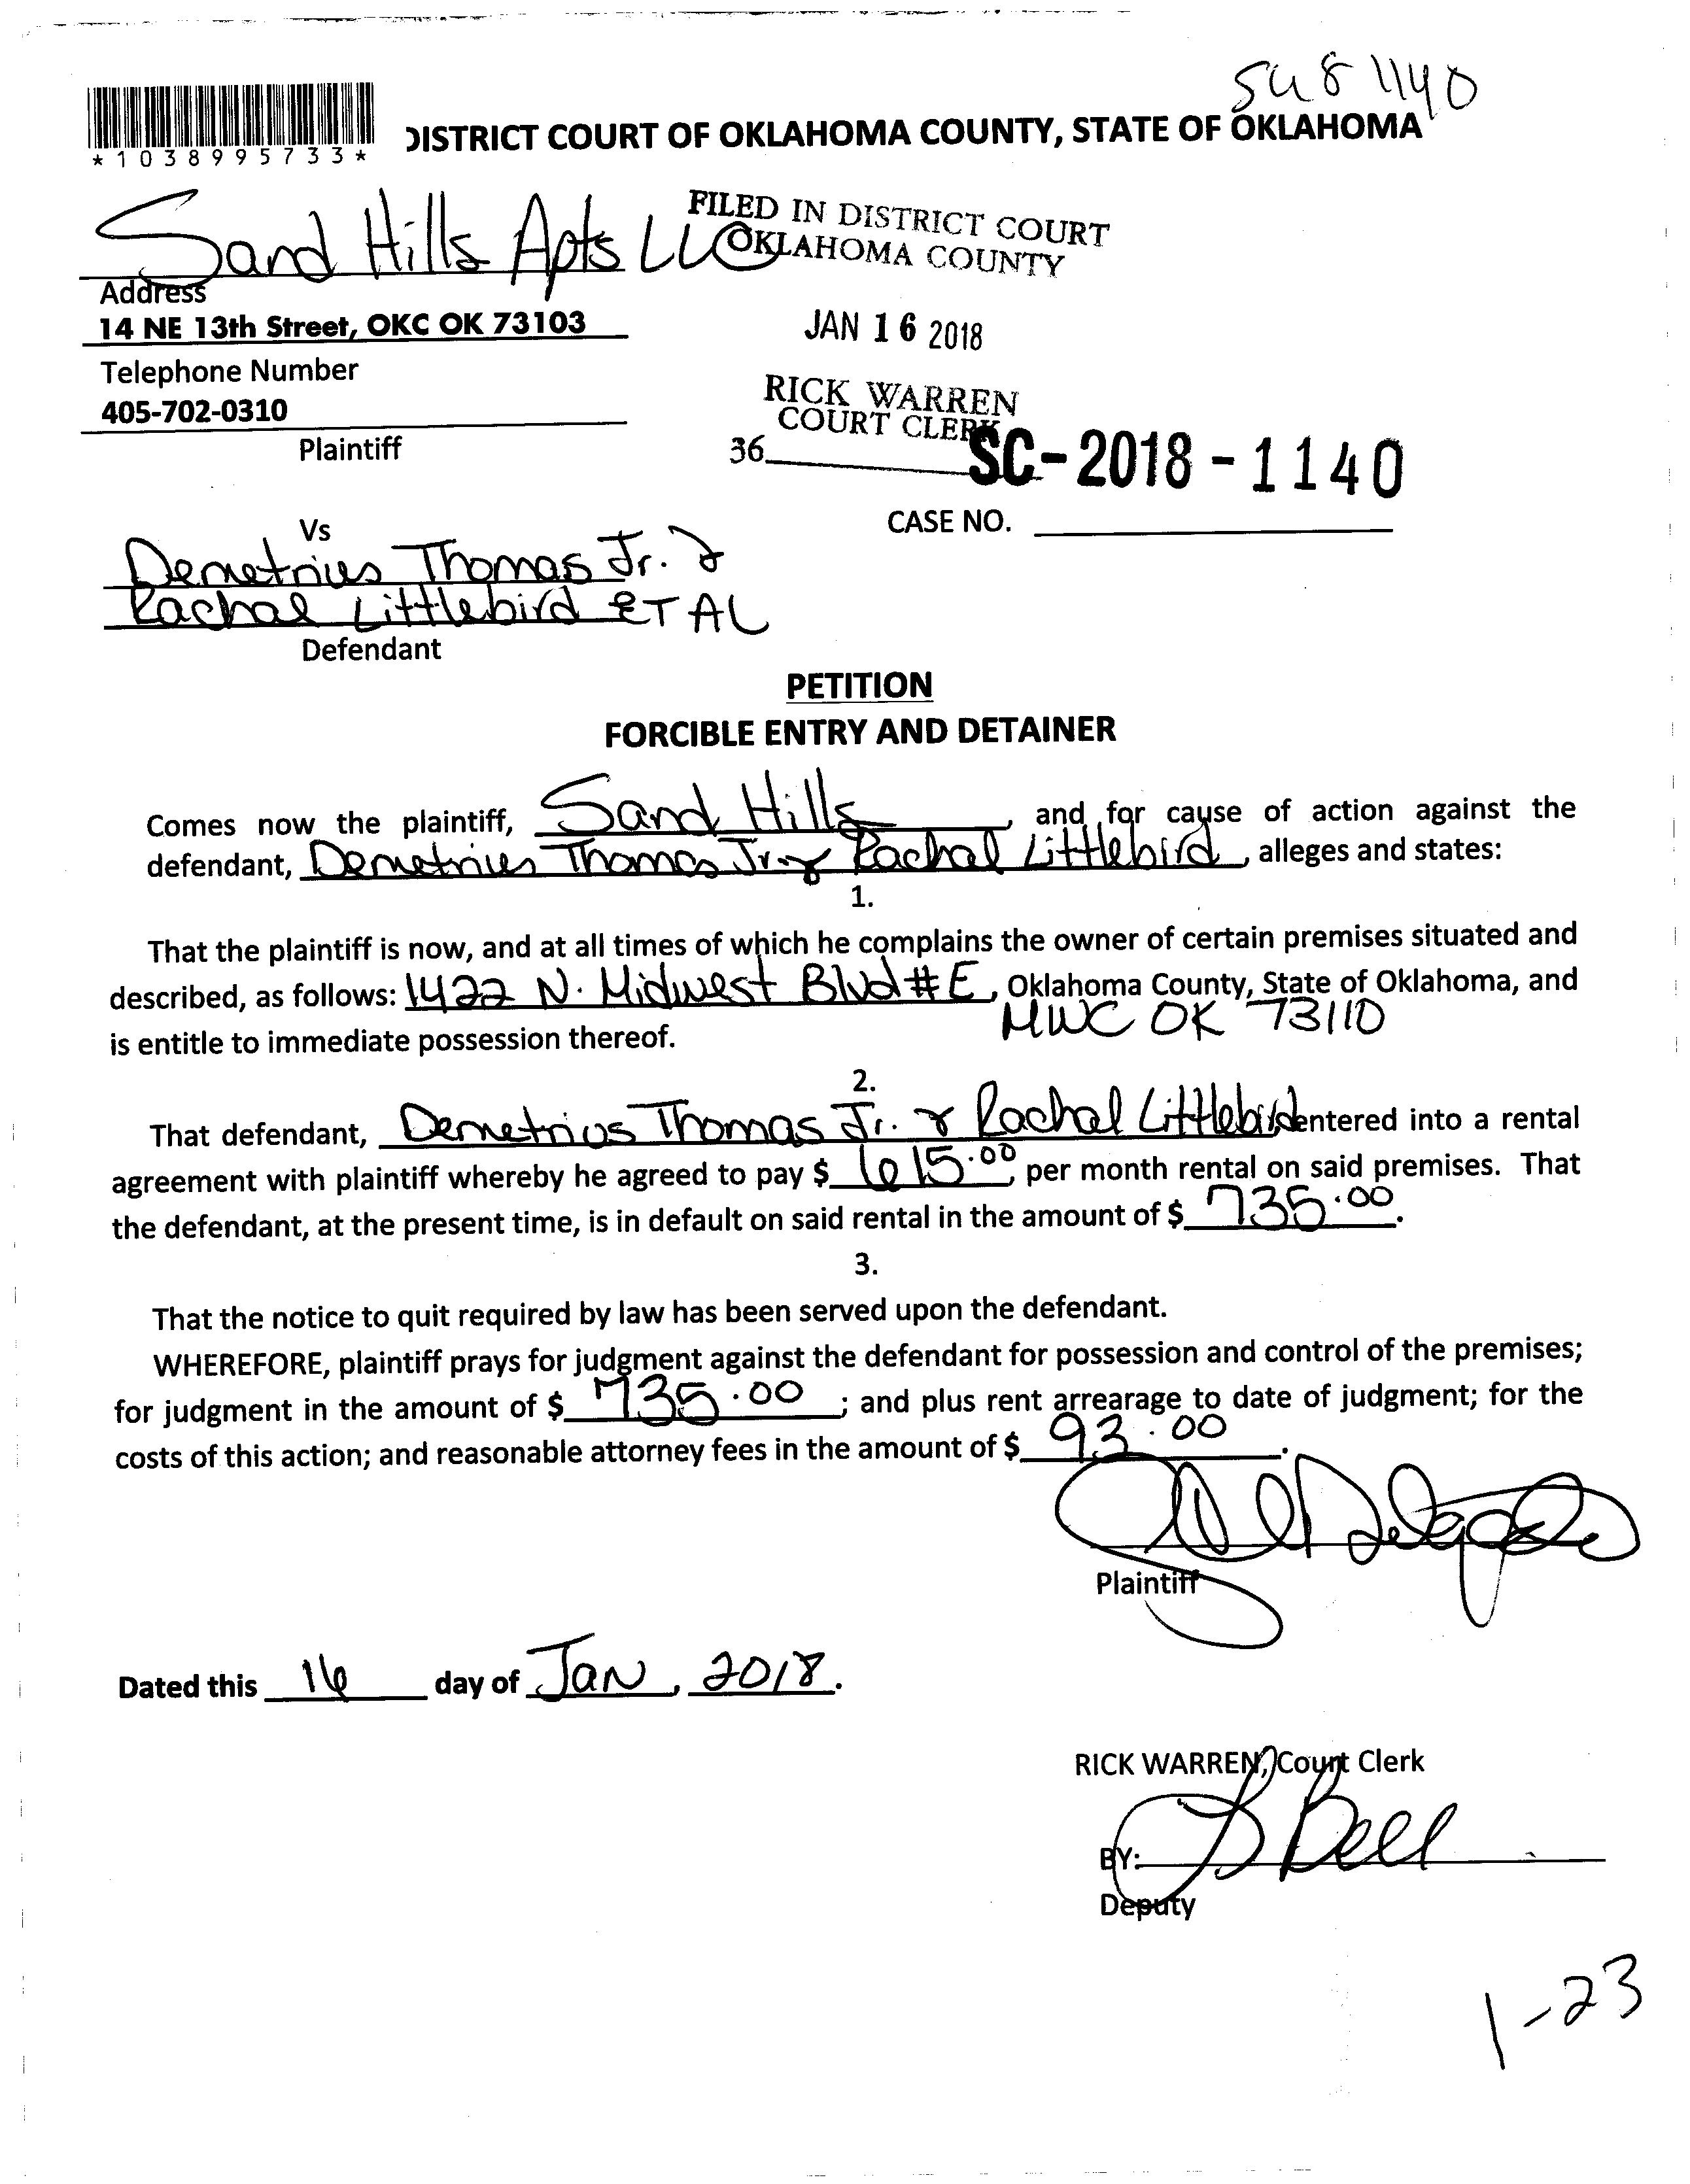 SC18 1140
*1038995733*
DISTRICT COURT OF OKLAHOMA COUNTY, STATE OF OKLAHOMA
Sand Hills Apts LLC
FILED IN DISTRICT COURT
OKLAHOMA COUNTY
Address
14 NE 13th Street, OKC OK 73103
JAN 16 2018
Telephone Number
405-702-0310
RICK WARREN
COURT CLERK
Plaintiff
36
SC-2018-1140
Vs
CASE NO.
Demetrius Thomas Jr. &
Rachal Littlebird ET AL
Defendant
PETITION
FORCIBLE ENTRY AND DETAINER
Comes now the plaintiff, Sand Hills, and for cause of action against the
defendant, Demetrius Thomas Jr. & Rachal Littlebird, alleges and states:
1.
That the plaintiff is now, and at all times of which he complains the owner of certain premises situated and
described, as follows: 1422 N. Midwest Blvd #E, Oklahoma County, State of Oklahoma, and
MWC OK 73110
is entitle to immediate possession thereof.
2.
That defendant, Demetrius Thomas Jr. & Rachal Littlebird entered into a rental
agreement with plaintiff whereby he agreed to pay $ 615.00, per month rental on said premises. That
the defendant, at the present time, is in default on said rental in the amount of $ 735.00.
3.
That the notice to quit required by law has been served upon the defendant.
WHEREFORE, plaintiff prays for judgment against the defendant for possession and control of the premises;
for judgment in the amount of $ 735.00; and plus rent arrearage to date of judgment; for the
costs of this action; and reasonable attorney fees in the amount of $ 93.00.
Plaintiff
Dated this 16 day of Jan, 2018.
RICK WARREN, Court Clerk
BY: Bell
Deputy
1-23